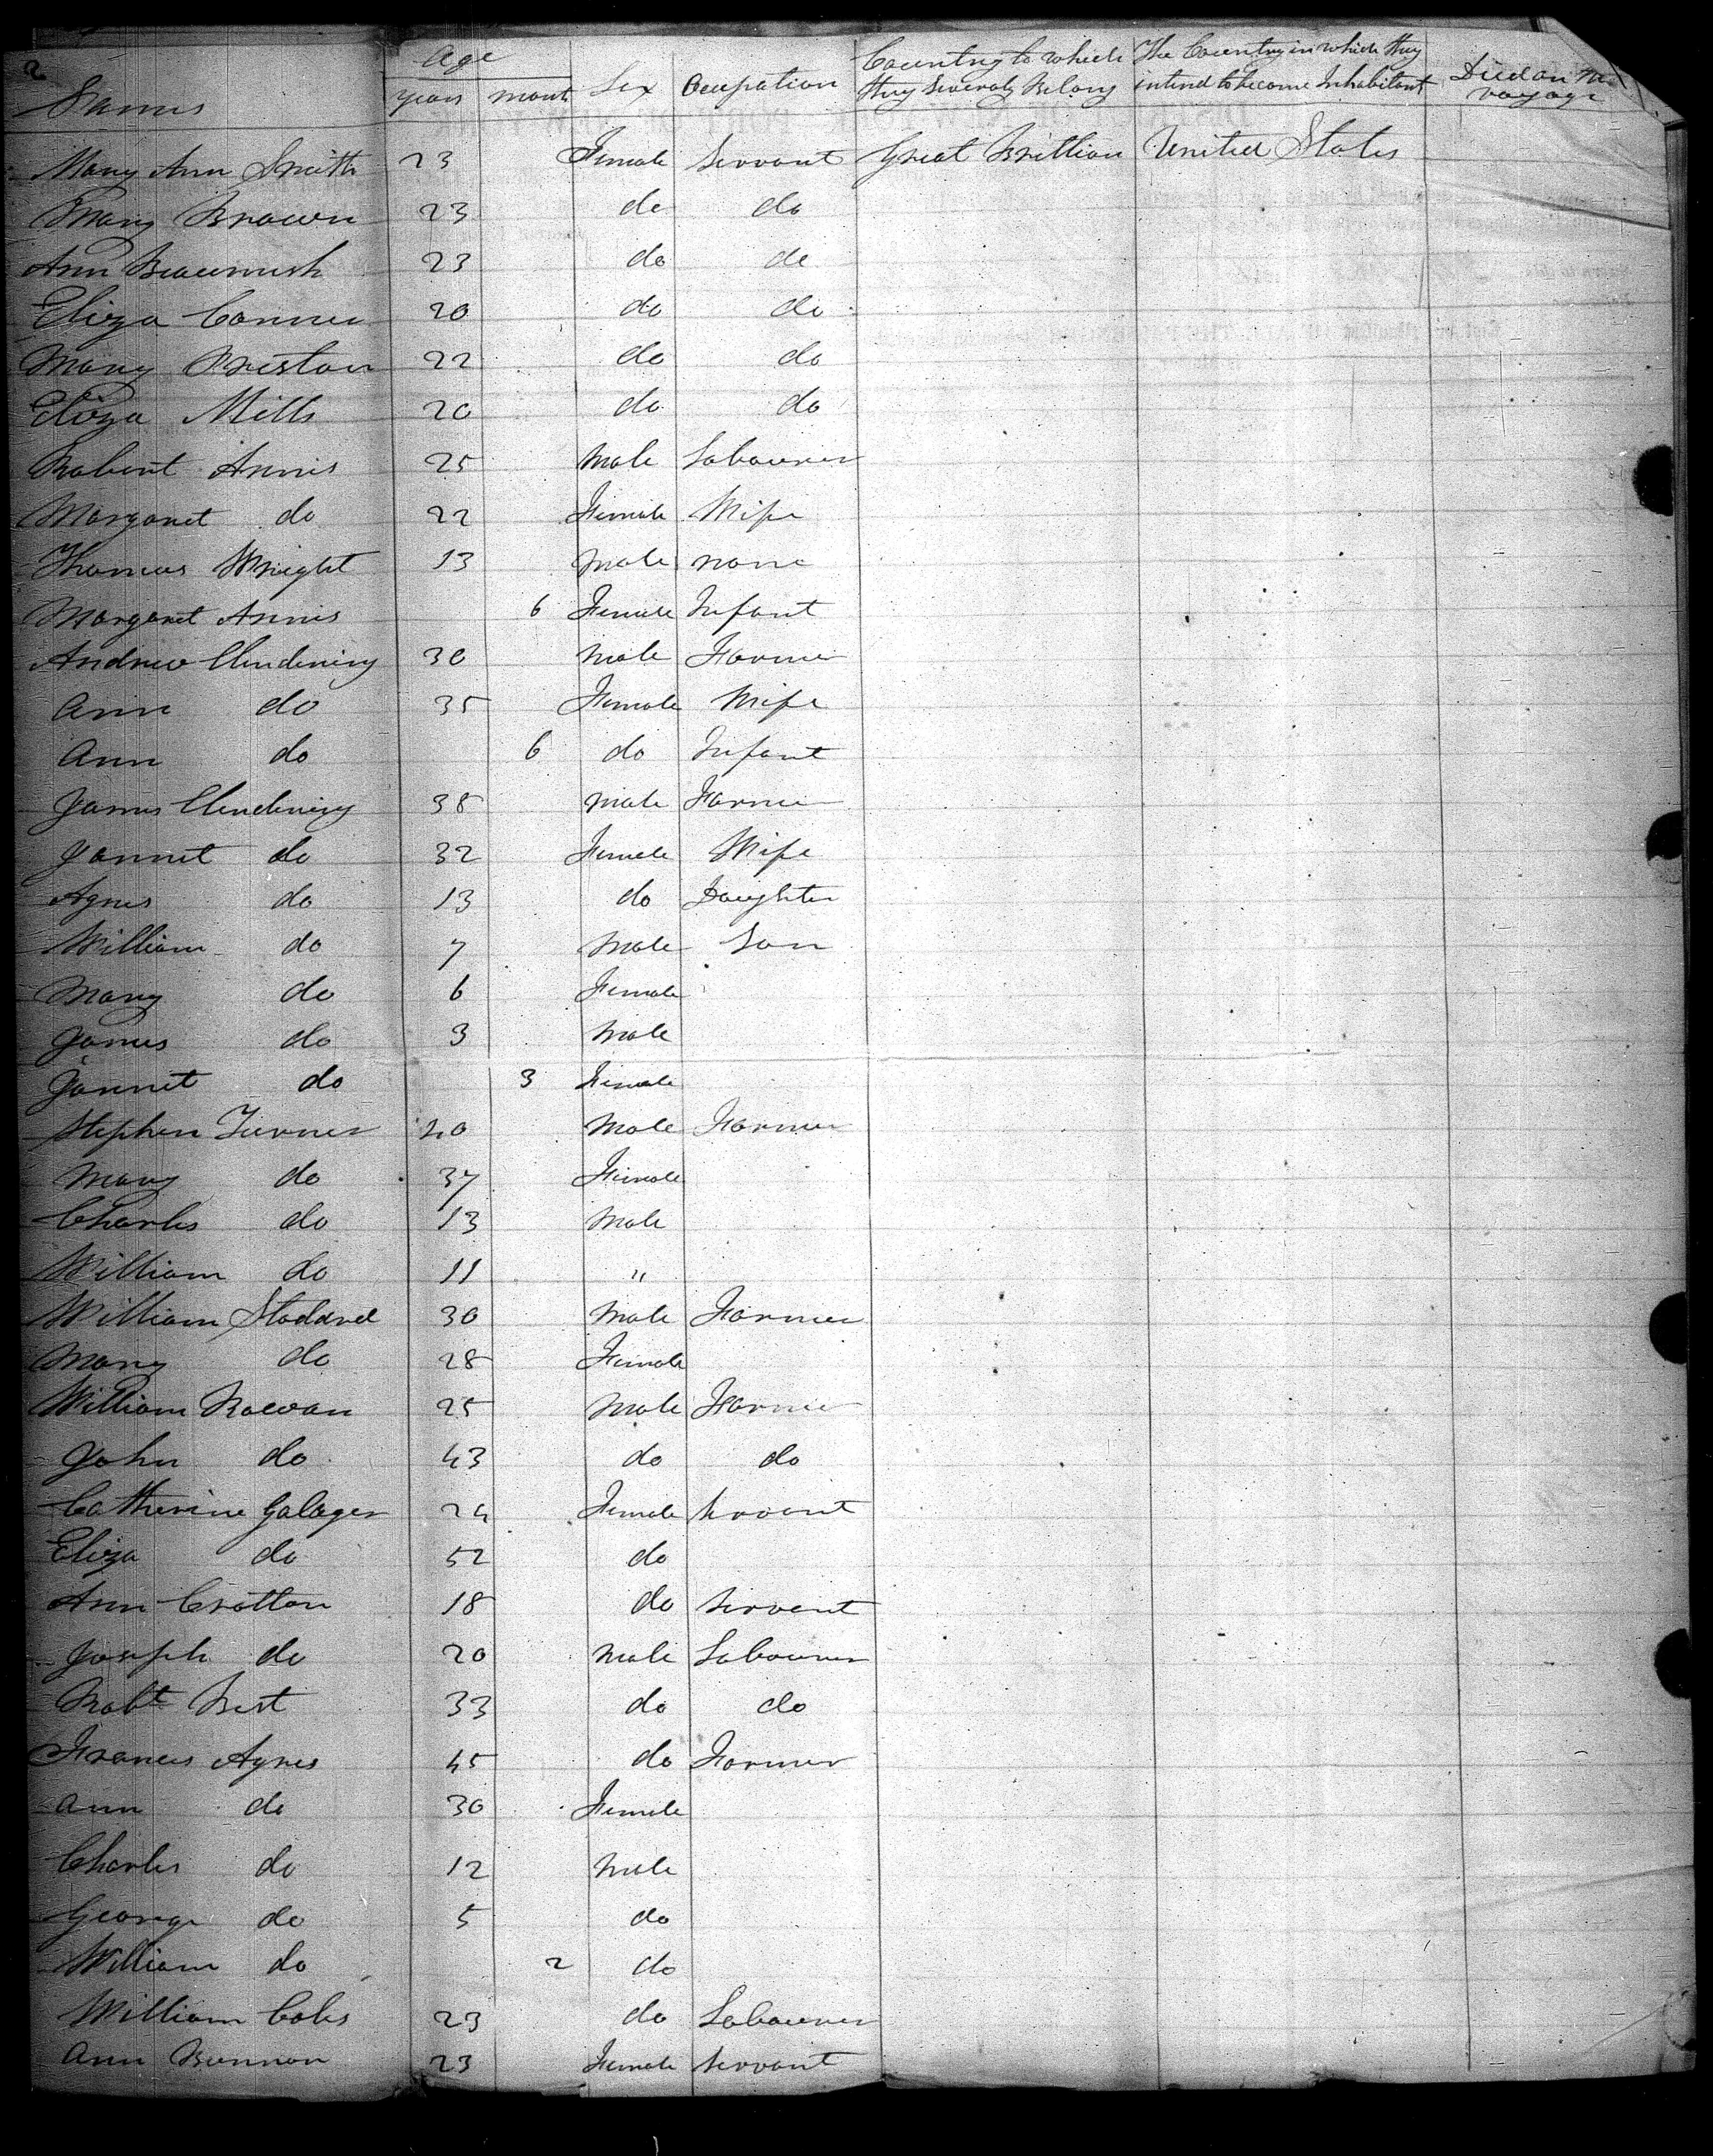 2
Names Age Sex Occupation Country to which The Country in which they Died on the
years mont they Severaly Belong intend to become Inhabitant voyage
Mary Ann Smith 23 Female Servant Great Brittian United States
Mary Brown 23 do do
Ann 23 do do
Eliza Conner 20 do do
Mary Preston 22 do do
Eliza Mills 20 do do
Robert Annis 25 Male Labourer
Margaret do 22 Female Wife
Thomas Wright 13 Male none
Margaret Annis 6 Female Infant
Andrew Clendening 30 Male Farmer
Ann do 35 Female Wife
Ann do 6 do Infant
James Clendening 38 Male Farmer
Jannet do 32 Female Wife
Agnes do 13 do Daughter
William do 7 Male Son
Mary do 6 Female
James do 3 Male
Jannet do 3 Female
Stephen Turner 40 Male Farmer
Mary do 37 Female
Charles do 13 Male
William do 11 "
William Stoddard 30 Male Farmer
Mary do 28 Female
William Rowan 25 Male Farmer
John do 43 do do
Catherine Galager 24 Female Servant
Eliza do 52 do
Ann Cratton 18 do Servant
Joseph do 20 Male Labourer
Robt Best 33 do do
Francis Agnes 45 do Farmer
Ann do 30 Female
Charles do 12 Male
George do 5 do
William do 2 do
William Coles 23 do Labourer
Ann Bannon 23 Female Servant